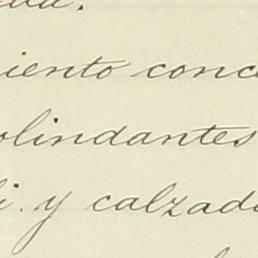 iento conc
olindantes
i. y calzad